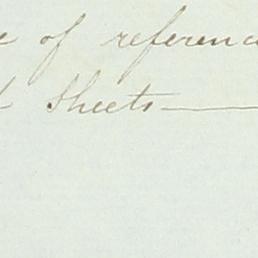 e of referenc
d Sheets—